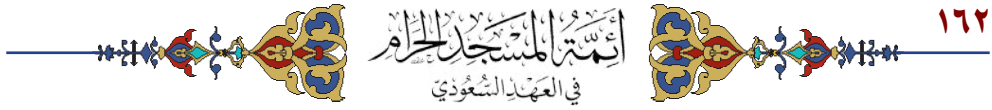 ١٦٢
أَئِمَّةُ المَسْجِدِ الحَرَامِ
في العَهْدِ السُّعُودِيّ